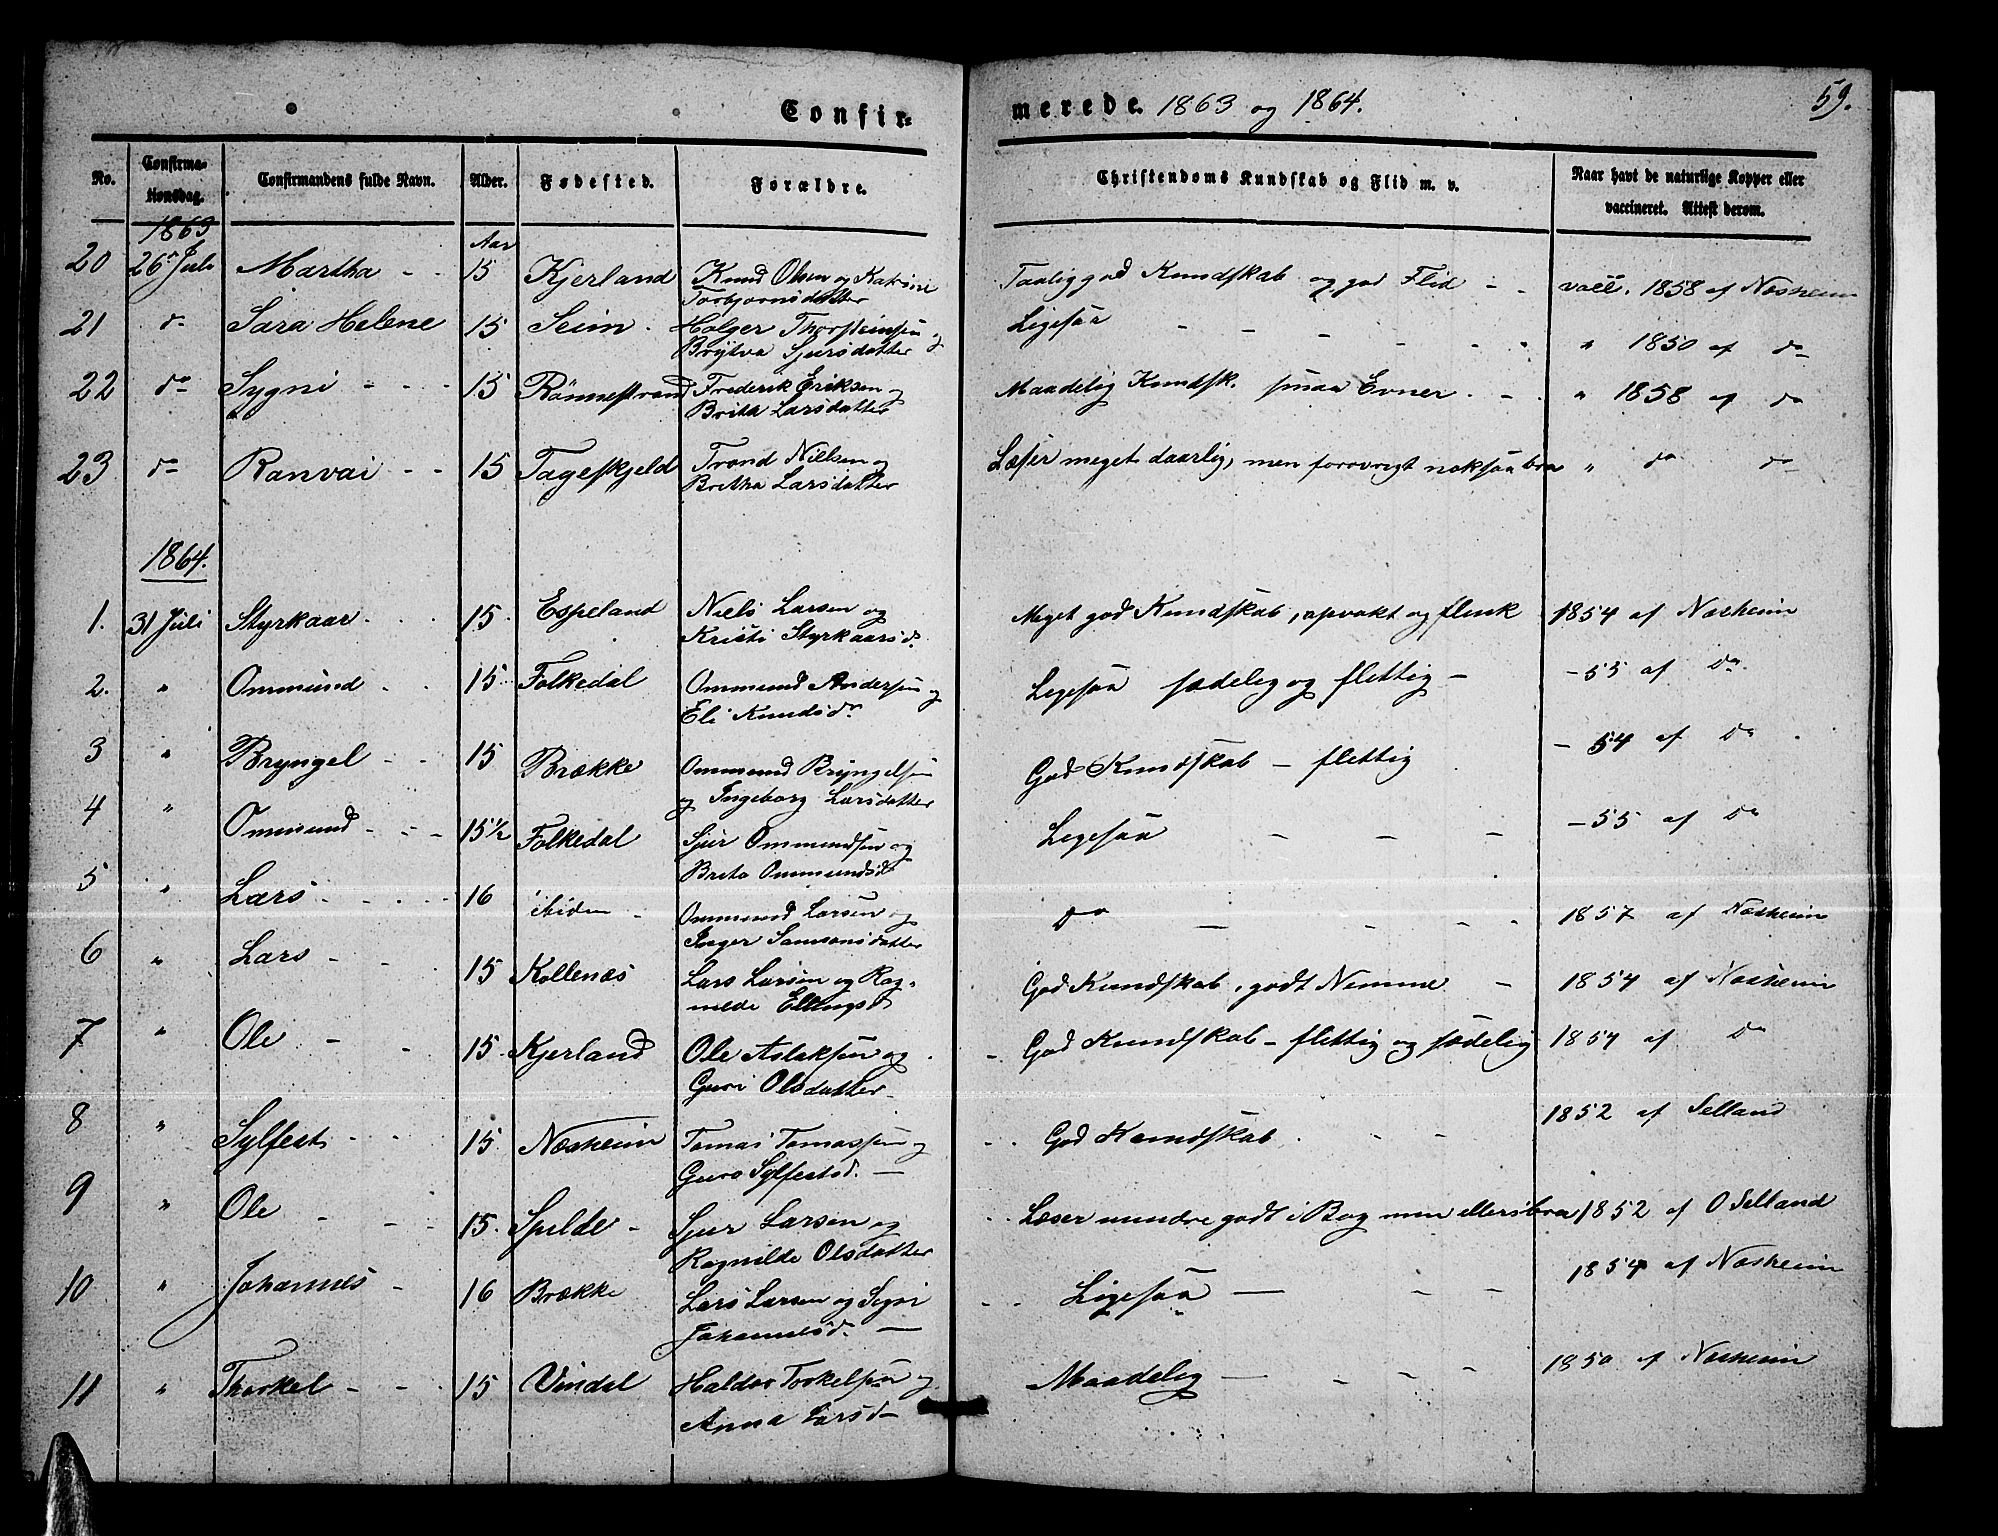 Confir-
merede. 1863 og 1864.
59.
No.
Confirma-
tionsdag.
Confirmandens fulde Navn.
Alder.
Fødested.
Forældre.
Christendoms Kundskab og Flid m. v.
Naar havt de naturlige Kopper eller
vaccineret. Attest derom.
1863
Aar
20 26 Juli Martha - - 15 Kjerland Knud Olsen og Katrine
Torbjørnsdatter
Taalig god Kundskab og god Flid - - vacc. 1858 af Næsheim
21 do Sara Helene 15 Seim. Holger Thorsteinsen og
Brytva Sjursdatter
Ligesaa - - - - - " 1850 af do
22 do Sygni - - - 15 Rønnestrand Frederik Eriksen og
Britha Larsdatter
Maadelig Kundsk. smaa Evner. - . " 1858 af do
23 do Ranvai - - 15 Tageskjeld Trond Nielsen og
Britha Larsdatter
Læser meget daarlig, men forøvrigt noksaa bra " do do
1864.
1. 31 Juli Styrkaar. - - 15. Espeland Niels Larsen og
Kristi Styrkaarsd.
Meget god Kundskab, opvakt og flink 1854 af Næsheim
2. " Ommund - - 15 Folkedal Ommund Andersen og
Eli Knudsdr
Ligesaa sædelig og flittig - - 55 af Do.
3 " Bryngel - - 15 Brække Ommund Bryngelsen
og Ingeborg Larsdatter
God Kundskab - flittig - 54 af Do
4 " Ommund - - - 15½ Folkedal Sjur Ommundsen og
Brita Ommundsd
Ligesaa - - - - 55 af Do
5 " Lars - - - - 16 ibidem - Ommund Larsen og
Inger Samsonsdatter
Do - - - - 1857 af Næsheim
6 " Lars - - 15 Kollenæs Lars Larsen og Rag-
nilde Ellingsd
God Kundskab, godt Nemme - 1854 af Næsheim
7 " Ole - - 15. Kjerland Ole Aslaksen og
Guri Olsdatter
God Kundskab - flittig og sædelig 1854 af Do
8 " Sylfest - - - 15 Næsheim Tomas Tomassen og
Guro Sylfestsd. -
God Kundskab. - - 1852 af Selland
9 " Ole - - - 15. Spilde - Sjur Larsen og
Ragnilde Olsdatter
Læser mindre godt i Bog men ellers bra 1852 af O Selland
10 " Johannes - 16 Brække Lars Larsen og Signi
Johannesd. -
Ligesaa - - - 1854 af Næsheim
11 " Thorkel - - - 15 Vindal Haldor Torkelsen og
Anna Larsd -
Maadelig - - - - 1850 af Næsheim